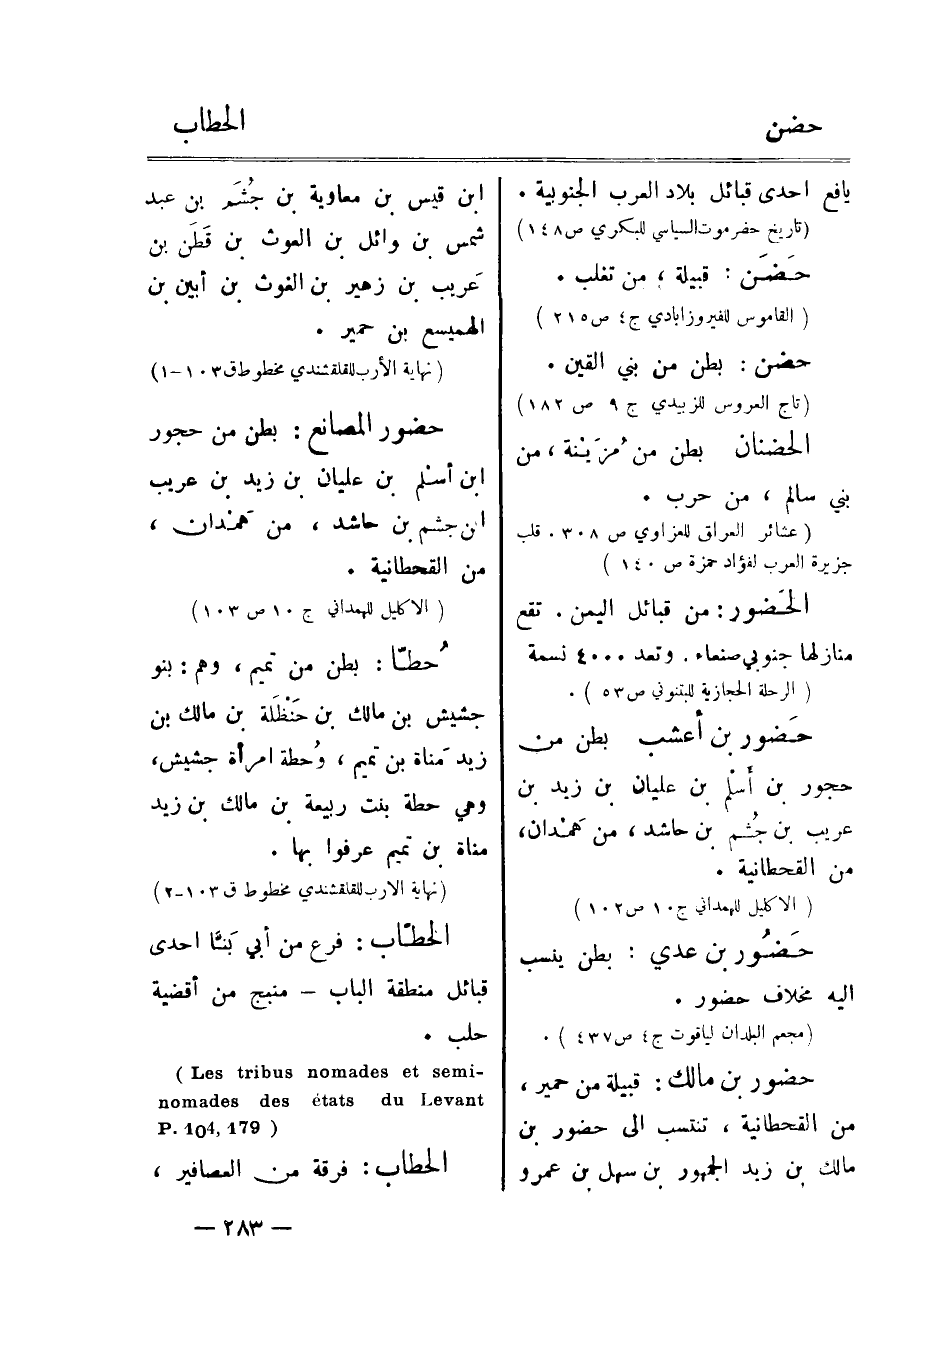 حضن
الحطاب
يافع احدى قبائل بلاد العرب الجنوبية .
(تاريخ حضرموت السياسي للبكري ص١٤٨)
حَضَن : قبيلة ، من تغلب .
( القاموس للفيروزابادي ج٤ ص٢١٥ )
حضن : بطن من بني القين .
(تاج العروس للزبيدي ج ٩ ص ١٨٢)
الحضنان بطن من مُزَيْنة ، من
بني سالم ، من حرب .
( عشائر العراق للعزاوي ص ٣٠٨ . قلب
جزيرة العرب لفؤاد حمزة ص ١٤٠ )
الحَضور : من قبائل اليمن . تقع
منازلها جنوبي صنعاء . وتعد ٤٠٠٠ نسمة
( الرحلة الحجازية للبتنوني ص٥٣ ) .
حَضور بن أعشب بطن من
حجور بن أَسْلُم بن عليان بن زيد بن
عريب بن جُشم بن حاشد ، من هَمْدان ،
من القحطانية .
( الاكليل للهمداني ج١٠ ص١٠٢ )
حَضُور بن عدي : بطن ينسب
اليه مخلاف حضور .
(معجم البلدان لياقوت ج٤ ص٤٣٧ ) .
حضور بن مالك : قبيلة من حمير ،
من القحطانية ، تنتسب الى حضور بن
مالك بن زيد الجمهور بن سهل بن عمرو
ابن قيس بن معاوية بن جُشَم بن عبد
شمس بن وائل بن الغوث بن قَطَن بن
عَريب بن زهير بن الغوث بن أبين بن
الهميسع بن حمير .
( نهاية الأرب للقلقشندي مخطوط ق١٠٣-١)
حضور المصانع : بطن من حجور
ابن أسْلم بن عليان بن زيد بن عريب
ابن جشم بن حاشد ، من هَمْدان ،
من القحطانية .
( الاكليل للهمداني ج ١٠ ص ١٠٣ )
حُطّا : بطن من تميم ، وهم : بنو
جشيش بن مالك بن حَنْظَلة بن مالك بن
زيد مَناة بن تميم ، وحُطة امرأة جشيش،
وهي حطة بنت ربيعة بن مالك بن زيد
مناة بن تميم عرفوا بها .
(نهاية الارب للقلقشندي مخطوط ق ١٠٣-٢)
الحطّاب : فرع من أبي بَنّا احدى
قبائل منطقة الباب – منبج من أقضية
حلب .
( Les tribus nomades et semi-
nomades des états du Levant
P. 104, 179 )
الحطاب : فرقة من العصافير ،
— ٢٨٣ —